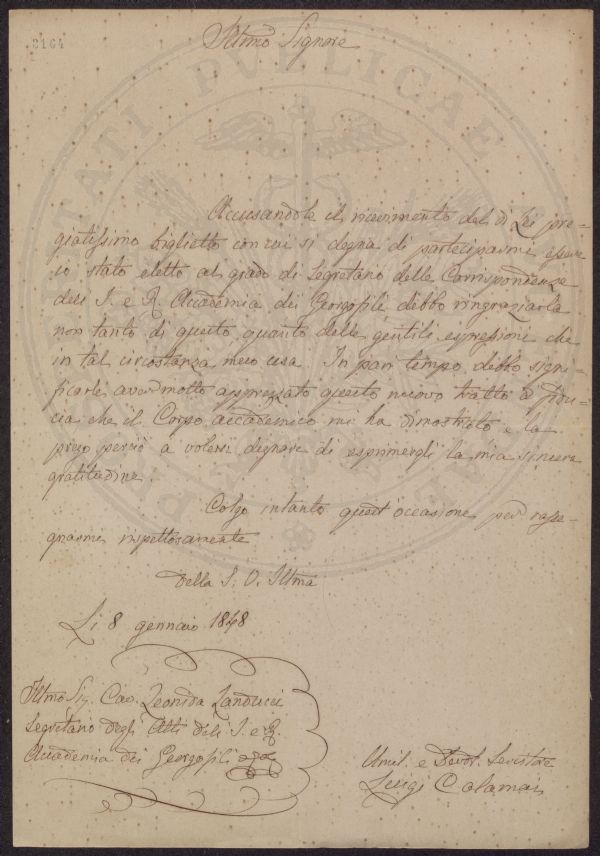 2164
Illmo Signore
Accusandole il ricevimento del di Lei pre-
giatissimo biglietto con cui si degna di parteciparmi essere
io stato eletto al grado di Segretario delle Corrispondenze
dell' I. e R. Accademia dei Georgofili debbo ringraziarla
non tanto di questo, quanto delle gentili espressioni che
in tal circostanza meco usa. In pari tempo debbo signi-
ficarle aver molto apprezzato questo nuovo tratto di fidu-
cia che il Corpo accademico mi ha dimostrato e la
prego perciò a volersi degnare di esprimergli la mia sincera
gratitudine.
Colgo intanto quest'occasione per rasse-
gnarmi rispettosamente
Della S. V. Illma
Li 8 gennaio 1848
Illmo Sig. Cav. Leonida Landucci
Segretario degli Atti dell' I. e R.
Accademia dei Georgofili
Umil. e Devot. Servitore
Luigi Calamai